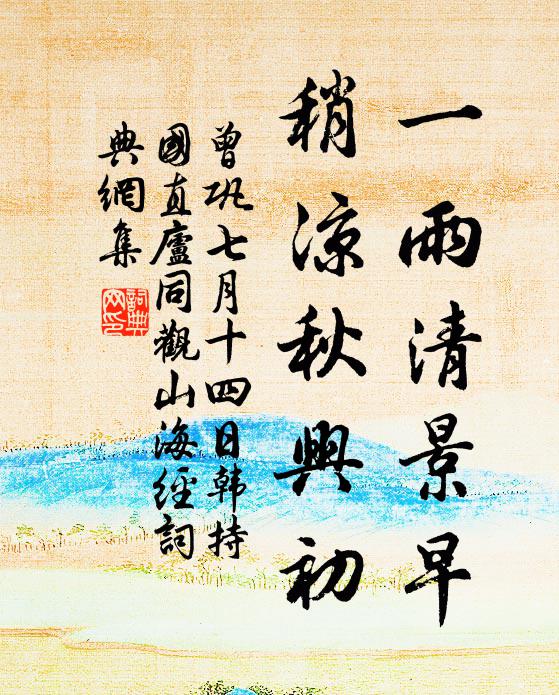 一雨清景早
稍凉秋興初
曾巩七月十四日韩持
國直廬同觀山海經詞
典網集
詞典
网印